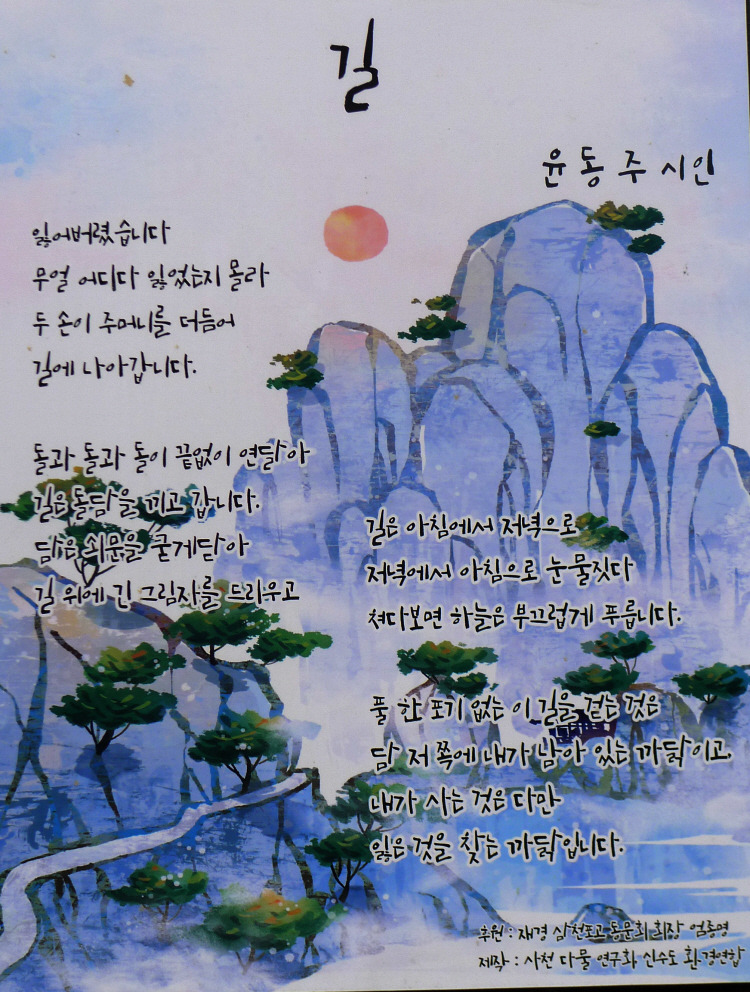 길
윤동주 시인
잃어버렸습니다
무얼 어디다 잃었는지 몰라
두 손이 주머니를 더듬어
길에 나아갑니다.
돌과 돌과 돌이 끝없이 연달아
길은 돌담을 끼고 갑니다.
담은 쇠문을 굳게닫아
길 위에 긴 그림자를 드리우고
길은 아침에서 저녁으로
저녁에서 아침으로 눈물짓다
쳐다보면 하늘은 부끄럽게 푸릅니다.
풀 한 포기 없는 이 길을 걷는 것은
담 저 쪽에 내가 남아 있는 까닭이고,
내가 사는 것은 다만
잃은 것을 찾는 까닭입니다.
후원 : 재경 삼천포고 동문회 회장 엄종명
제작 : 사천 다물 연구화 신수도 환경연합